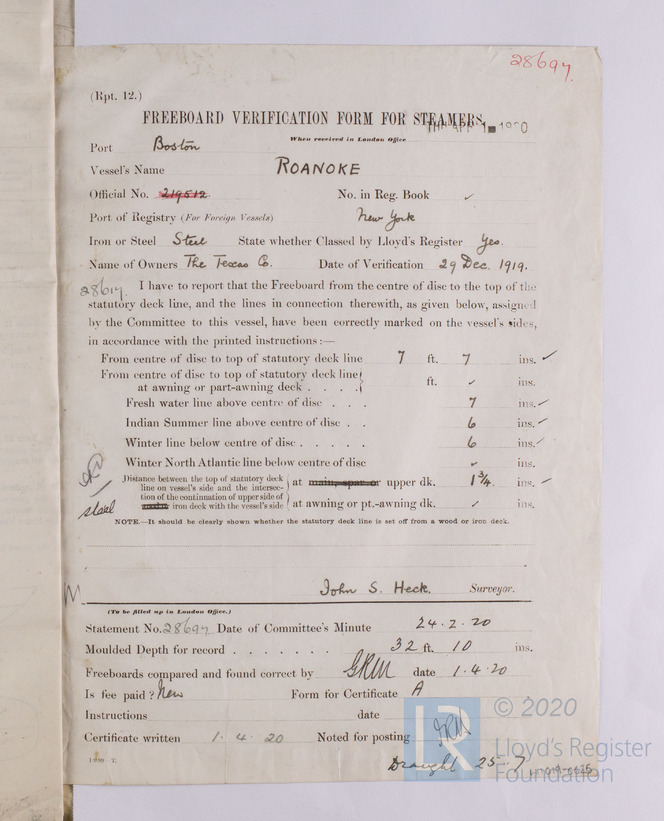 28697.
(Rpt. 12.)
FREEBOARD VERIFICATION FORM FOR STEAMERS.
THU. APR. 1 1920
When received in London Office
Port Boston
Vessel's Name ROANOKE
Official No. 219512 No. in Reg. Book ✓
Port of Registry (For Foreign Vessels) New York
Iron or Steel Steel State whether Classed by Lloyd's Register Yes.
Name of Owners The Texas Co. Date of Verification 29 Dec. 1919.
28617 I have to report that the Freeboard from the centre of disc to the top of the
statutory deck line, and the lines in connection therewith, as given below, assigned
by the Committee to this vessel, have been correctly marked on the vessel's sides,
in accordance with the printed instructions :—
From centre of disc to top of statutory deck line 7 ft. 7 ins. ✓
From centre of disc to top of statutory deck line
at awning or part-awning deck . . . . ft. ✓ ins.
Fresh water line above centre of disc . . . 7 ins. ✓
Indian Summer line above centre of disc . . 6 ins. ✓
Winter line below centre of disc . . . . . 6 ins. ✓
Winter North Atlantic line below centre of disc ✓ ins.
Distance between the top of statutory deck
line on vessel's side and the intersec- at main, spar or upper dk. 1 3/4 ins. ✓
tion of the continuation of upper side of
wooden iron deck with the vessel's side at awning or pt.-awning dk. ✓ ins.
steel
NOTE.—It should be clearly shown whether the statutory deck line is set off from a wood or iron deck.
John S. Heck. Surveyor.
(To be filled up in London Office.)
Statement No. 28697 Date of Committee's Minute 24.2.20
Moulded Depth for record . . . . . . . 32 ft. 10 ins.
Freeboards compared and found correct by GRM date 1.4.20
Is fee paid? New Form for Certificate A
Instructions date
Certificate written 1.4.20 Noted for posting GRM
Draught 25-7
© 2020
LR
Lloyd's Register
Foundation